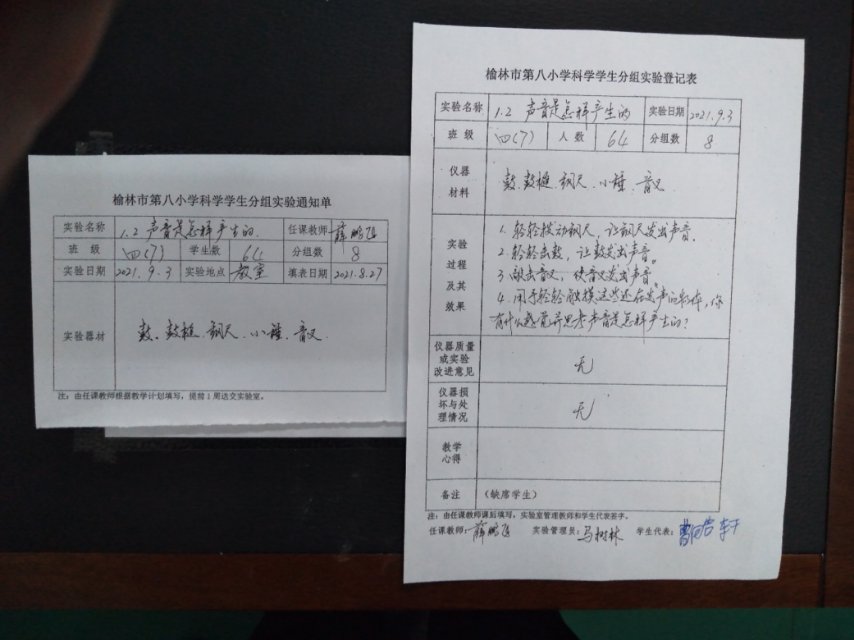 榆林市第八小学科学学生分组实验通知单
实验名称 1.2 声音是怎样产生的. 任课教师 薛鹏飞
班 级 四(7) 学生数 64 分组数 8
实验日期 2021.9.3 实验地点 教室 填表日期 2021.8.27
实验器材 鼓、鼓槌、钢尺、小锤、音叉.
注：由任课教师根据教学计划填写，提前1周送交实验室。
榆林市第八小学科学学生分组实验登记表
实验名称 1.2 声音是怎样产生的 实验日期 2021.9.3
班 级 四(7) 人 数 64 分组数 8
仪器
材料
鼓、鼓槌、钢尺、小锤、音叉.
实验
过程
及其
效果
1. 轻轻拨动钢尺，让钢尺发出声音。
2. 轻轻击鼓，让鼓发出声音。
3. 敲击音叉，使音叉发出声音。
4. 用手轻轻触摸这些还在发声的物体，你
有什么感觉并思考声音是怎样产生的？
仪器质量
或实验
改进意见
无
仪器损
坏与处
理情况
无
教学
心得
备注 （缺席学生）
注：由任课教师课后填写，实验室管理教师和学生代表签字。
任课教师：薛鹏飞 实验管理员：马树林 学生代表：